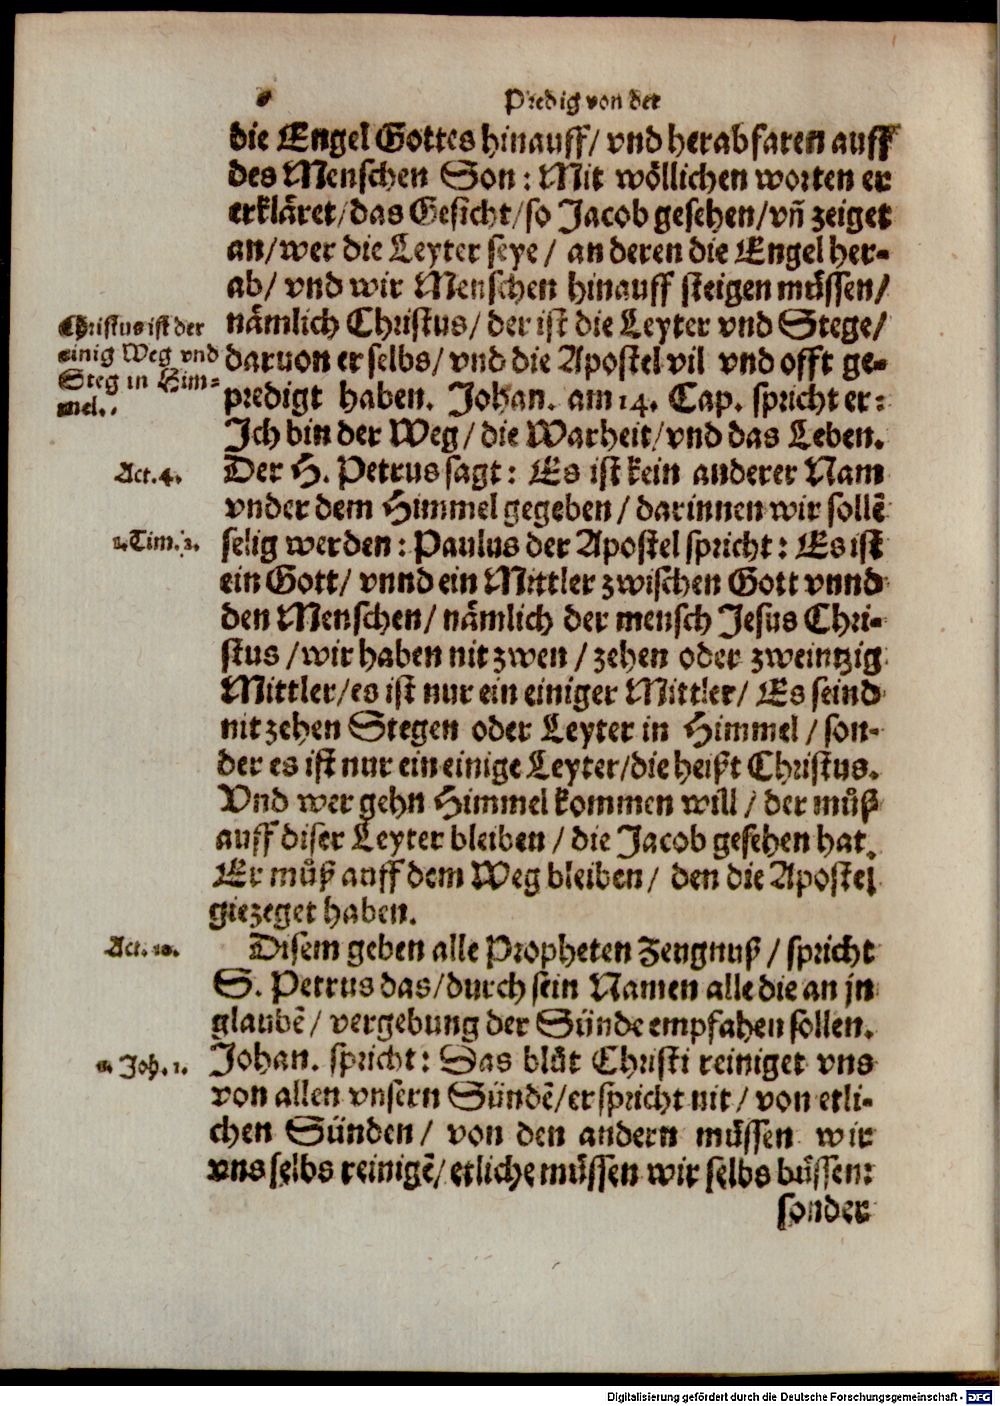 Predig von der
die Engel Gottes hinauff/ vnd herab faren auff
des Menschen Son: Mit wöllichen worten er
erkläret/das Gesicht/so Jacob gesehen/vñ zeiget
an/wer die Leyter seye/ an deren die Engel her-
ab/ vnd wir Menschen hinauff steigen müssen/
nämlich Christus/ der ist die Leyter vnd Stege/
daruon er selbs/ vnd die Apostel vil vnd offt ge-
predigt haben. Johan. am 14. Cap. spricht er:
Ich bin der Weg/ die Warheit/vnd das Leben.
Der H. Petrus sagt: Es ist kein anderer Nam
vnder dem Himmel gegeben/ darinnen wir sollẽ
selig werden: Paulus der Apostel spricht: Es ist
ein Gott/ vnnd ein Mittler zwischen Gott vnnd
den Menschen/ nämlich der mensch Jesus Chri-
stus/wir haben nit zwen/ zehen oder zweintzig
Mittler/es ist nur ein einiger Mittler/ Es seind
nit zehen Stegen oder Leyter in Himmel/ son-
der es ist nur ein einige Leyter/die heißt Christus.
Vnd wer gehn Himmel kommen will/ der můß
auff diser Leyter bleiben/ die Jacob gesehen hat.
Er můß auff dem Weg bleiben/ den die Apostel
giezeget haben.
Disem geben alle Propheten Zeugnuß/ spricht
S. Petrus das/durch sein Namen alle die an jn
glaubẽ/ vergebung der Sünde empfahen sollen.
Johan. spricht: Das blůt Christi reiniget vns
von allen vnsern Sündẽ/er spricht nit/ von etli-
chen Sünden/ von den andern müssen wir
vns selbs reinigẽ/ etliche müssen wir selbs büssen:
sonder
Christus ist der
einig Weg vnd
Steg in Him-
mel.
Act. 4.
1. Tim. 2.
Act. 10.
Joh. 1.
Digitalisierung gefördert durch die Deutsche Forschungsgemeinschaft - DFG